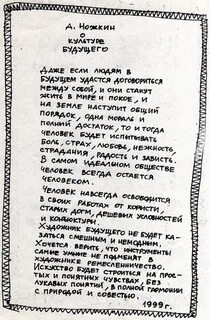 Д. Ножкин
о
культуре
будущего
Даже если людям в
будущем удастся договориться
между собой, и они станут
жить в мире и покое, и
на земле наступит общий
порядок, одна мораль и
полный достаток, то и тогда
человек будет испытывать
боль, страх, любовь, нежность,
страдания, радость и зависть.
В самом идеальном обществе
человек всегда остается
человеком.
Человек навсегда освободится
в своих работах от корысти,
старых догм, дешевых условностей
и конъюктуры.
Художник будущего не будет ка-
заться смешным и немодним.
Хочется верить, что инструменты
самые умные не подменят в
художнике ремесленничество.
Искусство будет строиться на прос-
тых и понятных чувствах, без
лукавых понятий, в полной гармонии
с природой и совестью.
1999 г.